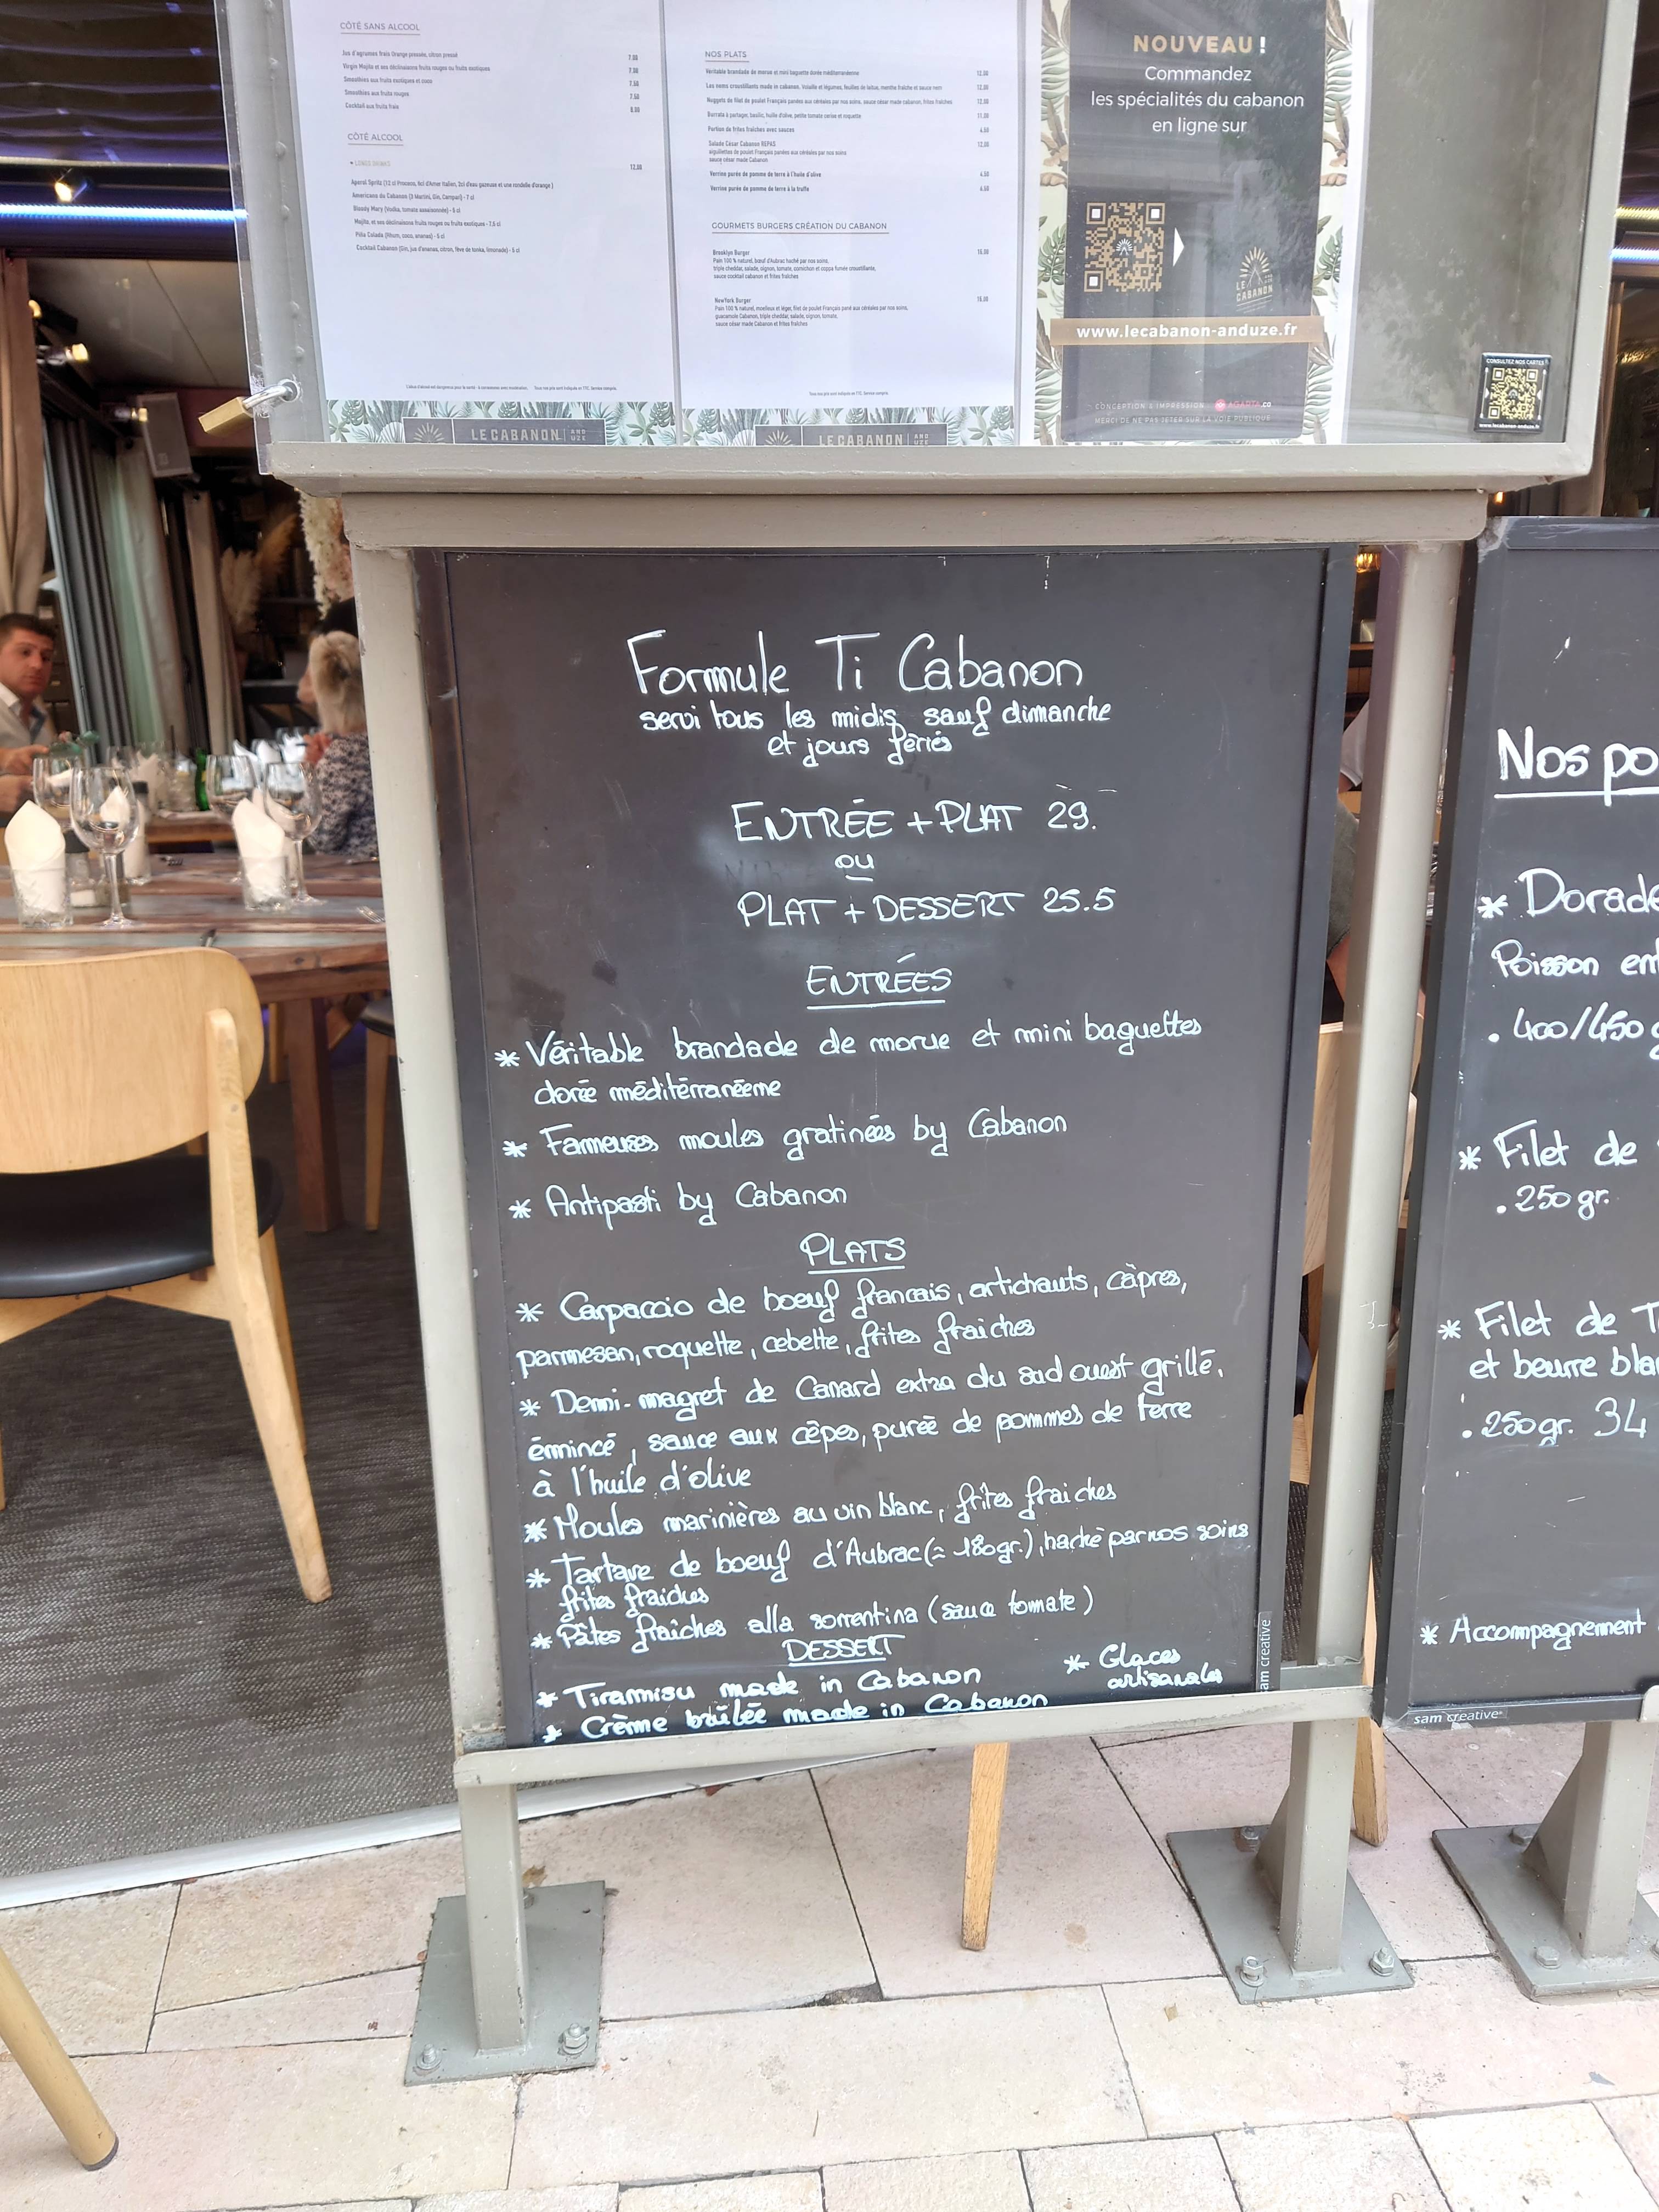 CÔTÉ SANS ALCOOL
Jus d'agrumes frais Orange pressée, citron pressé 7.00
Virgin Mojito et ses déclinaisons fruits rouges ou fruits exotiques 7.00
Smoothies aux fruits exotiques et coco 7.50
Smoothies aux fruits rouges 7.50
Cocktail aux fruits frais 8.00
CÔTÉ ALCOOL
• LONGS DRINKS 12,00
Aperol Spritz (12 cl Prosseco, 8cl d'Amer Italien, 2cl d'eau gazeuse et une rondelle d'orange)
Americano du Cabanon (2 Martini, Gin, Campari) - 7 cl
Bloody Mary (Vodka, tomate assaisonnée) - 5 cl
Mojito, et ses déclinaisons fruits rouges ou fruits exotiques - 7,5 cl
Piña Colada (Rhum, coco, ananas) - 5 cl
Cocktail Cabanon (Gin, jus d'ananas, citron, fève de tonka, limonade) - 5 cl
LE CABANON AND UZE
NOS PLATS
Véritable brandade de morue et mini baguette dorée méditerranéenne 12,00
Les nems croustillants made in cabanon, Volaille et légumes, feuilles de laitue, menthe fraîche et sauce nem 12,00
Nuggets de filet de poulet Français panées aux céréales par nos soins, sauce césar made cabanon, frites fraîches 12,00
Burrata à partager, basilic, huile d'olive, petite tomate cerise et roquette 11,00
Portion de frites fraîches avec sauces 6.50
Salade César Cabanon REPAS 12,00
aiguillettes de poulet Français panées aux céréales par nos soins
sauce césar made Cabanon
Verrine purée de pomme de terre à l'huile d'olive 4.50
Verrine purée de pomme de terre à la truffe 6.50
GOURMETS BURGERS CRÉATION DU CABANON
Brooklyn Burger 16,00
Pain 100 % naturel, bœuf d'Aubrac haché par nos soins,
triple cheddar, salade, oignon, tomate, cornichon et coppa fumée croustillante,
sauce cocktail cabanon et frites fraîches
NewYork Burger 16,00
Pain 100 % naturel, moelleux et léger, filet de poulet Français pané aux céréales par nos soins,
guacamole Cabanon, triple cheddar, salade, oignon, tomate,
sauce césar made Cabanon et frites fraîches
Tous nos prix sont indiqués en TTC. Service compris.
LE CABANON AND UZE
NOUVEAU !
Commandez
les spécialités du cabanon
en ligne sur
LE CABANON
www.lecabanon-anduze.fr
CONCEPTION & IMPRESSION AGARTA.CO
MERCI DE NE PAS JETER SUR LA VOIE PUBLIQUE
CONSULTEZ NOS CARTES
www.lecabanon-anduze.fr
Formule Ti Cabanon
servi tous les midis sauf dimanche
et jours fériés
ENTRÉE + PLAT 29.
ou
PLAT + DESSERT 25.5
ENTRÉES
* Véritable brandade de morue et mini baguettes
dorée méditérranéeme
* Fameuses moules gratinées by Cabanon
* Antipasti by Cabanon
PLATS
* Carpaccio de boeuf francais, artichauts, câpres,
parmesan, roquette, cebette, frites fraiches
* Demi-magret de Canard extra du sud ouest grillé,
émincé, sauce aux cèpes, purée de pommes de terre
à l'huile d'olive
* Moules marinières au vin blanc, frites fraiches
* Tartare de boeuf d'Aubrac (≈ 180gr.), haché par nos soins
frites fraiches
* Pâtes fraîches alla sorrentina (sauce tomate)
DESSERT
* Tiramisu made in Cabanon
* Glaces
artisanales
* Crème brûlée made in Cabanon
sam creative
Nos po
* Dorade
Poisson ent
. 400/450 g
* Filet de
. 250 gr.
* Filet de T
et beurre bla
. 250gr. 34
* Accompagnement
sam creative